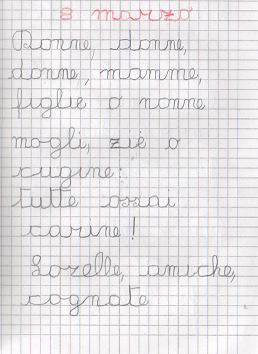 8 marzo
Donne, donne,
donne, mamme,
figlie o nonne
mogli, zie o
cugine:
tutte assai
carine!
Sorelle, amiche,
cognate